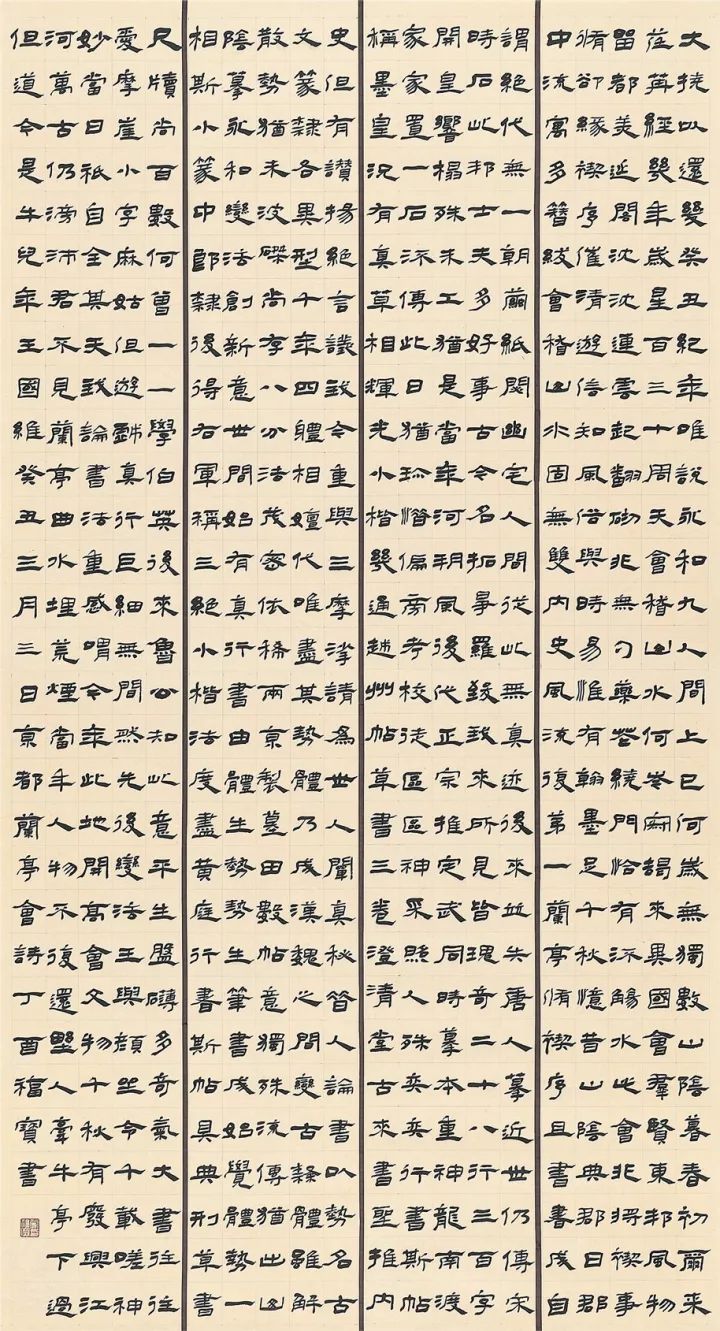 大撓以還幾癸丑紀年唯說永和九人間上巳何歲無獨數山陰暮春初爾來
荏苒經幾年歲星百三十周天會稽山水何岑寂朅來異國會羣賢東邦風物
留都美延閣沈沈連雲起翻砌非無勺藥花繞門恰有流觴水此會非將禊事
脩却緣禊序催清遊信知風俗與時易惟有翰墨足千秋憶昔山陰典郡日郡
中流寓多簪紱會稽山水固無雙內史風流復第一蘭亭脩禊序且書書成自
謂絕代無一朝繭紙閟幽宅人間從此無真迹後來並失唐人摹近世仍傳宋
時石此邦士夫多好事古今名拓爭羅致我來所見皆瑰奇二十八行三百字
開皇響榻殊未工猶是當年河朔風後代正宗推定武同時摹本重神龍南渡
家家置一石流傳此日猶珍惜偏旁考校徒區區神采照人殊奕奕行書斯帖
稱墨皇況有真草相輝光小楷幾通越州帖草書三卷澄清堂古來書聖推內
史但有讚揚絕言議致令重與三摩挲請為世人闡真秘昔人論書以勢名古
文篆隸各異型千年四體相嬗代唯盡其勢體乃成漢魏之間變古隸體雖解
散勢猶未波磔尚存八分法茂密依稀兩京製墓田數帖意獨殊流傳猶出山
陰摹永和變法創新意世間始有真行書由體生勢勢生筆書成始覺體勢一
相斯小篆中郎隸後得右軍稱三絕小楷法度盡黃庭行書斯帖具典刑草書
尺牘尚百數何曾一一學伯英後來魯公知此意平生盤礴多奇氣大書往往
愛摩崖小字麻姑但遊戲真行巨細無間然先後變法王與顏坐令千載嗟神
妙當日祇自全其天我論書法重感喟今年此地開高會文物千秋有廢興江
河萬古仍滂沛君不見蘭亭曲水埋荒煙當年人物不復還野人牽牛亭下過
但道今是牛兒年王國維癸丑三月三日京都蘭亭會詩丁酉福寶書